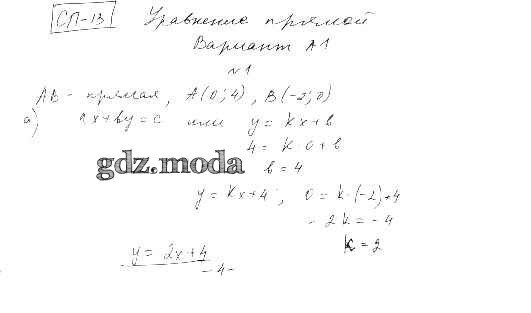 СП-13 Уравнение прямой
Вариант А1
№1
АВ - прямая, А(0; 4), В(-2; 0)
а) ax+by=c или y = kx+b
4 = k·0+b
gdz.moda
b = 4
y = kx+4; 0 = k·(-2)+4
-2k = -4
k = 2
y = 2x+4
-4-